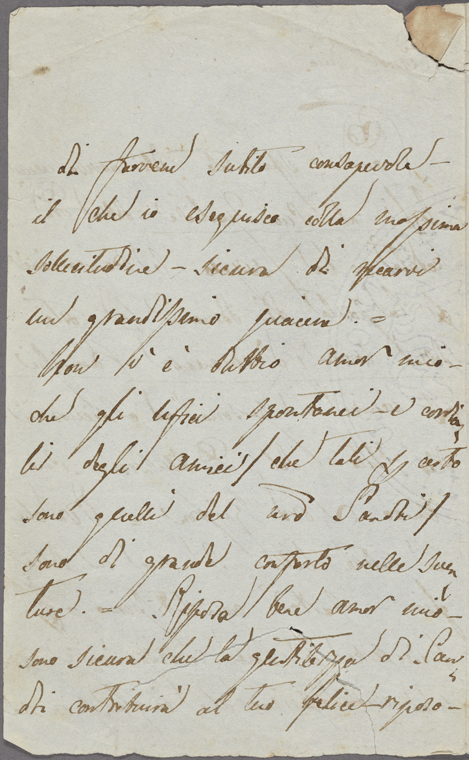 di farvene subito consapevole –
il che io eseguisco colla massima
sollecitudine – sicura di recarvi
un grandissimo piacere. =
Non v'è dubbio amor mio –
che gli ufici spontanei – e cordia
li degli amici / che tali p certo
sono quelli del Sandri /
sono di grande conforto nelle sven
ture. = Riposa bene amor mio –
sono sicura che la gentilezza di San
dri contribuirà al tuo felice riposo –